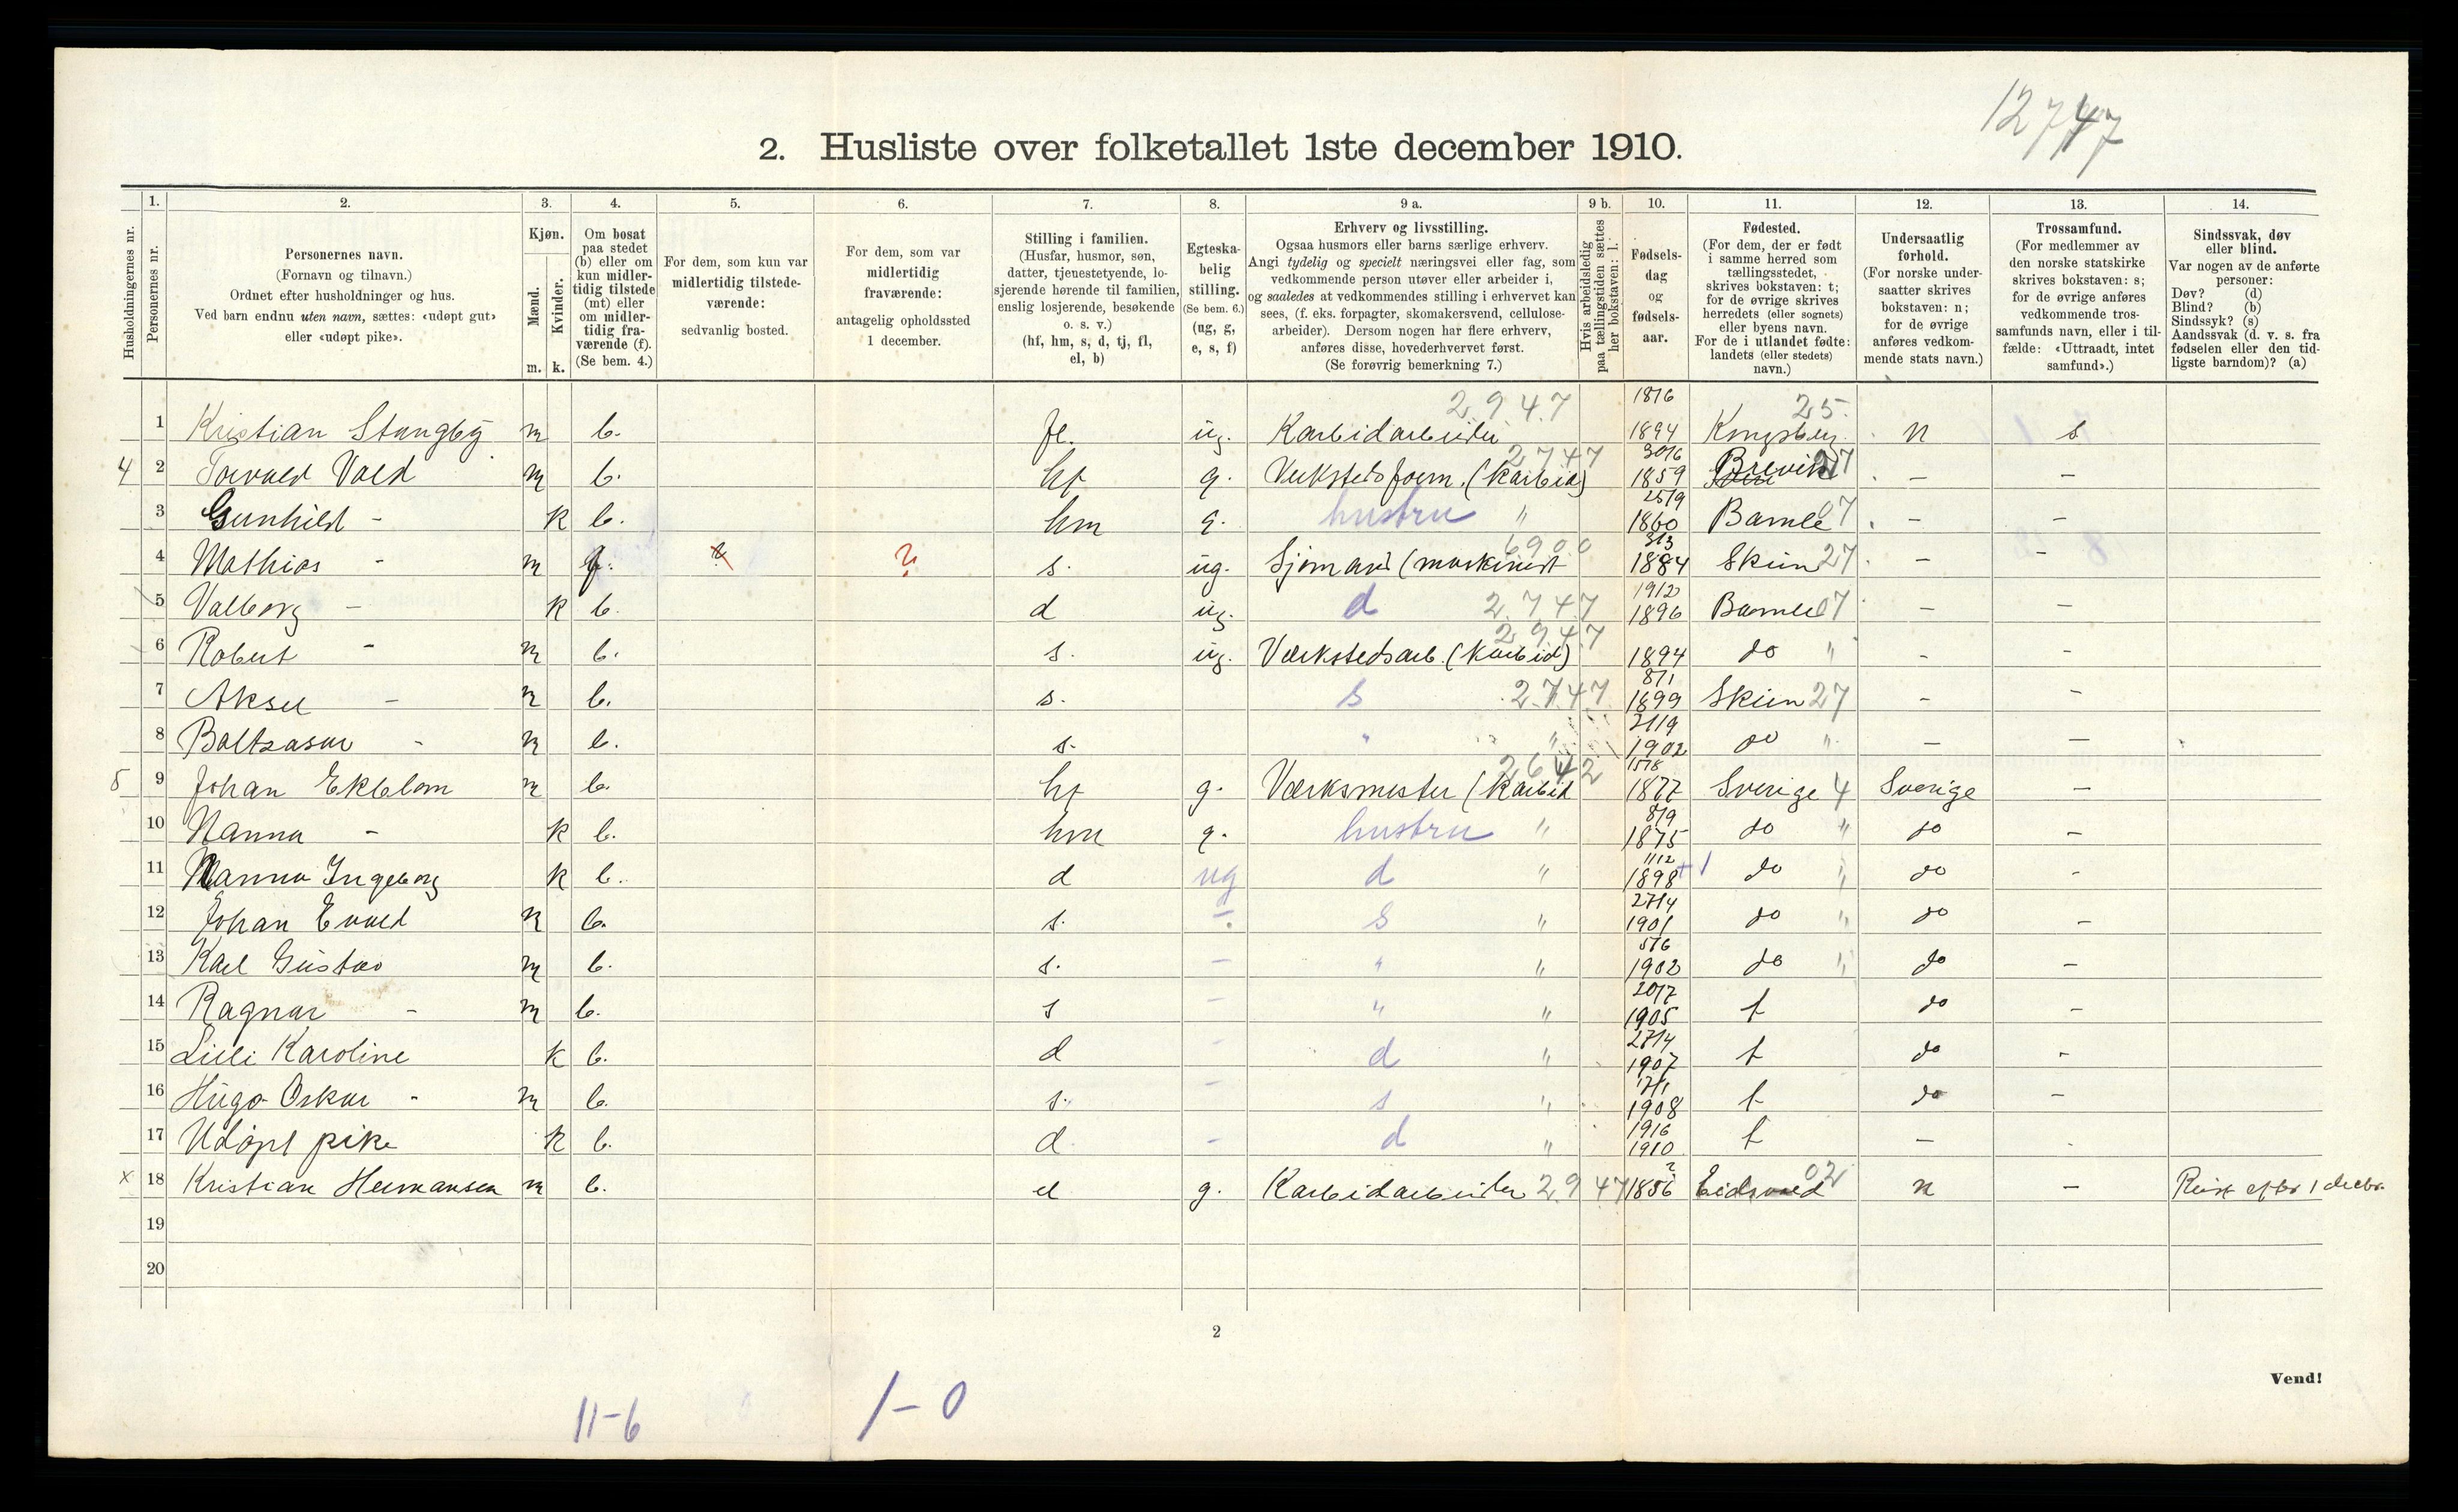 12747
2. Husliste over folketallet 1ste december 1910.
Husholdningernes nr.
1. Personernes nr.
2. Personernes navn.
(Fornavn og tilnavn.)
Ordnet efter husholdninger og hus.
Ved barn endnu uten navn, sættes: «udøpt gut»
eller «udøpt pike».
3. Kjøn.
Mænd. m.
Kvinder. k.
4. Om bosat
paa stedet
(b) eller om
kun midler-
tidig tilstede
(mt) eller
om midler-
tidig fra-
værende (f).
(Se bem. 4.)
5. For dem, som kun var
midlertidig tilstede-
værende:
sedvanlig bosted.
6. For dem, som var
midlertidig
fraværende:
antagelig opholdssted
1 december.
7. Stilling i familien.
(Husfar, husmor, søn,
datter, tjenestetyende, lo-
sjerende hørende til familien,
enslig losjerende, besøkende
o. s. v.)
(hf, hm, s, d, tj, fl,
el, b)
8. Egteska-
belig
stilling.
(Se bem. 6.)
(ug, g,
e, s, f)
9 a. Erhverv og livsstilling.
Ogsaa husmors eller barns særlige erhverv.
Angi tydelig og specielt næringsvei eller fag, som
vedkommende person utøver eller arbeider i,
og saaledes at vedkommendes stilling i erhvervet kan
sees, (f. eks. forpagter, skomakersvend, cellulose-
arbeider). Dersom nogen har flere erhverv,
anføres disse, hovederhvervet først.
(Se forøvrig bemerkning 7.)
9 b. Hvis arbeidsledig
paa tællingstiden sættes
her bokstaven: l.
10. Fødsels-
dag
og
fødsels-
aar.
11. Fødested.
(For dem, der er født
i samme herred som
tællingsstedet,
skrives bokstaven: t;
for de øvrige skrives
herredets (eller sognets)
eller byens navn.
For de i utlandet fødte:
landets (eller stedets)
navn.)
12. Undersaatlig
forhold.
(For norske under-
saatter skrives
bokstaven: n;
for de øvrige
anføres vedkom-
mende stats navn.)
13. Trossamfund.
(For medlemmer av
den norske statskirke
skrives bokstaven: s;
for de øvrige anføres
vedkommende tros-
samfunds navn, eller i til-
fælde: «Uttraadt, intet
samfund».)
14. Sindssvak, døv
eller blind.
Var nogen av de anførte
personer:
Døv? (d)
Blind? (b)
Sindssyk? (s)
Aandssvak (d. v. s. fra
fødselen eller den tid-
ligste barndom)? (a)
1 Kristian Stangby m b. fl. ug. Karbidarbeider 2947 18/6 1894 Kongsberg 25 n s
4 2 Torvald Vold m b. hf g. Verkstedsform. (Karbid) 2747 30/6 1859 Brevik 27 - -
3 Gunhild - k b. hm g. hustru " 25/9 1860 Bamle 07 - -
4 Mathias - m f. ? ? s. ug. Sjømand (maskinist 6900 31/3 1884 Skien 27 - -
5 Valborg - k b. d ug. d 2747 19/12 1896 Bamle 07 - -
6 Robert - m b. s. ug. Værkstedsarb. (Karbid) 2947 1894 do " - -
7 Aksel - m b. s. s 2747 8/1 1899 Skien 27 - -
8 Baltzasar - m b. s. " " 21/9 1902 do " - -
5 9 Johan Ekblom m b. hf g. Værksmester (Karbid 2642 15/8 1877 Sverige 4 Sverige -
10 Nanna - k b. hm g. hustru " 8/9 1875 do " do -
11 Nanna Ingeborg k b. d ug d " 11/2 1898 + 1 do " do -
12 Johan Evald m b. s. - s " 27/4 1901 do " do -
13 Karl Gustav m b. s. - " " 5/6 1902 do " do -
14 Ragnar - m b. s - " " 20/7 1905 t do -
15 Lilli Karoline k b. d - d " 27/4 1907 t do -
16 Hugo Oskar - m b. s. - s " 17/1 1908 t do -
17 Udøpt pike k b. d - d " 19/6 1910 t -
x 18 Kristian Hermansen m b. el g. Karbidarbeider 2947 ? 1856 Eidsvold 02 n - Reist efter 1 decbr.
19
20
2
Vend!
11-6 1-0